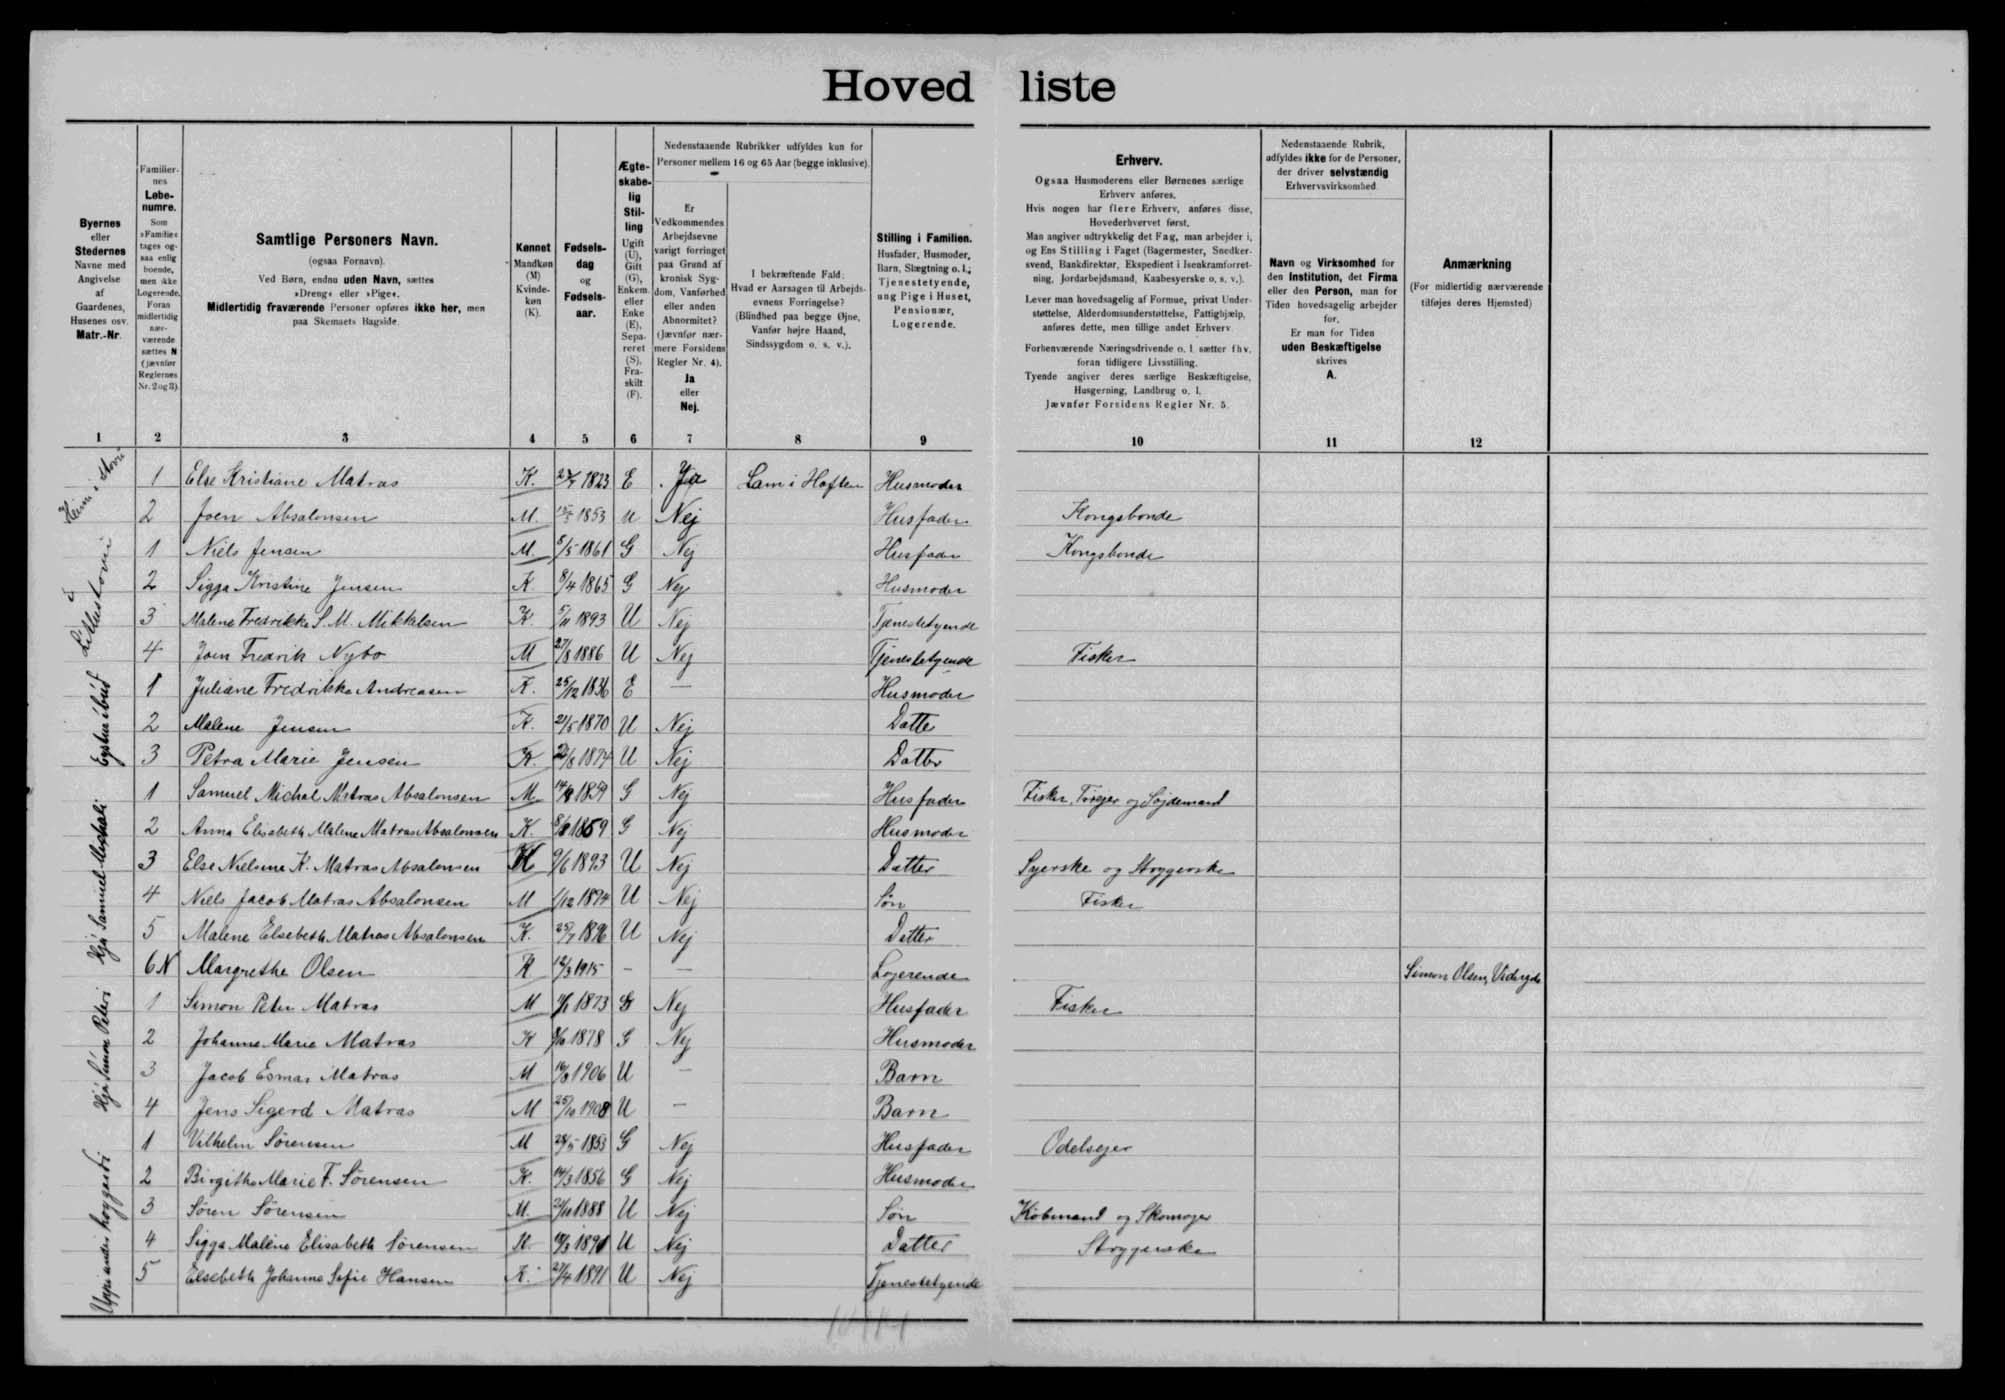 Hovedliste
Byernes
eller
Stedernes
Navne med
Angivelse
af
Gaardenes,
Husenes osv.
Matr.-Nr.
Familier-
nes
Løbe-
numre.
Som
»Familie«
tages og-
saa enlig
boende,
men ikke
Logerende.
Foran
midlertidig
nær-
værende
sættes N
(jævnfør
Reglernes
Nr. 2 og 3).
Samtlige Personers Navn.
(ogsaa Fornavn).
Ved Børn, endnu uden Navn, sættes
»Dreng« eller »Pige«.
Midlertidig fraværende Personer opføres ikke her, men
paa Skemaets Bagside.
Kønnet
Mandkøn
(M)
Kvinde-
køn
(K).
Fødsels-
dag
og
Fødsels-
aar.
Ægte-
skabe-
lig
Stil-
ling
Ugift
(U),
Gift
(G),
Enkem.
eller
Enke
(E),
Sepa-
reret
(S),
Fra-
skilt
(F).
Nedenstaaende Rubrikker udfyldes kun for
Personer mellem 16 og 65 Aar (begge inklusive).
Er
Vedkommendes
Arbejdsevne
varigt forringet
paa Grund af
kronisk Syg-
dom, Vanførhed
eller anden
Abnormitet?
(Jævnfør nær-
mere Forsidens
Regler Nr. 4).
Ja
eller
Nej.
I bekræftende Fald:
Hvad er Aarsagen til Arbejds-
evnens Forringelse?
(Blindhed paa begge Øjne,
Vanfør højre Haand,
Sindssygdom o. s. v.).
Stilling i Familien.
Husfader, Husmoder,
Barn, Slægtning o. l.;
Tjenestetyende,
ung Pige i Huset,
Pensionær,
Logerende.
Erhverv.
Ogsaa Husmoderens eller Børnenes særlige
Erhverv anføres.
Hvis nogen har flere Erhverv, anføres disse,
Hovederhvervet først.
Man angiver udtrykkelig det Fag, man arbejder i,
og Ens Stilling i Faget (Bagermester, Snedker-
svend, Bankdirektør, Ekspedient i Isenkramforret-
ning, Jordarbejdsmand, Kaabesyerske o. s. v.).
Lever man hovedsagelig af Formue, privat Under-
støttelse, Alderdomsunderstøttelse, Fattighjælp,
anføres dette, men tillige andet Erhverv.
Forhenværende Næringsdrivende o. l. sætter fhv.
foran tidligere Livsstilling.
Tyende angiver deres særlige Beskæftigelse,
Husgerning, Landbrug o. l.
Jævnfør Forsidens Regler Nr. 5.
Nedenstaaende Rubrik,
udfyldes ikke for de Personer,
der driver selvstændig
Erhvervsvirksomhed.
Navn og Virksomhed for
den Institution, det Firma
eller den Person, man for
Tiden hovedsagelig arbejder
for.
Er man for Tiden
uden Beskæftigelse
skrives
A.
Anmærkning
(For midlertidig nærværende
tilføjes deres Hjemsted)
1 2 3 4 5 6 7 8 9 10 11 12
1 Else Kristiane Matras K. 1823 E Ja Lam i Hoften Husmoder
2 Joen Absalonsen M. 1853 U Nej Husfader Kongsbonde
1 Niels Jensen M. 8/5 1861 G Nej Husfader Kongsbonde
2 Sigga Kristine Jensen K. 8/4 1865 G Nej Husmoder
3 Malene Fredrikke S. M. Mikkelsen K. 5/11 1893 U Nej Tjenestetyende
4 Joen Fredrik Nybo M 27/8 1886 U Nej Tjenestetyende Fisker
1 Juliane Fredrikke Andreasen K. 25/12 1836 E — Husmoder
2 Malene Jensen K. 21/5 1870 U Nej Datte
3 Petra Marie Jensen K. 1874 U Nej Datter
1 Samuel Michal Matras Absalonsen M 1859 G Nej Husfader Fisker, og Sløjdemand
2 Anna Elisabeth Malene Matras Absalonsen K. 1859 G Nej Husmoder
3 Else Nielsine K. Matras Absalonsen K 9/6 1893 U Nej Datter Syerske og Strygerske
4 Niels Jacob Matras Absalonsen M 1/12 1894 U Nej Søn Fisker
5 Malene Elsebeth Matras Absalonsen K. 25/7 1896 U Nej Datter
6 N Margrethe Olsen K 12/3 1915 — — Logerende Simon Olsen, Viderejde
1 Simon Peter Matras M 1873 G Nej Husfader Fisker
2 Johanne Marie Matras K 1878 G Nej Husmoder
3 Jacob Esmar Matras M 1906 U — Barn
4 Jens Sigerd Matras M 25/10 1908 U — Barn
1 Vilhelm Sörensen M 28/5 1853 G Nej Husfader Odelsejer
2 Birgithe Marie F. Sörensen K. 14/3 1856 G Nej Husmoder
3 Sören Sörensen M. 1888 U Nej Søn Købmand og Skomager
4 Sigga Malene Elisabeth Sörensen K. 1890 U Nej Datter Strygerske
5 Elsebeth Johanne Sofie Hansen K. 21/4 1891 U Nej Tjenestetyende
Hjá Samuel
Hjá Simon Peteri